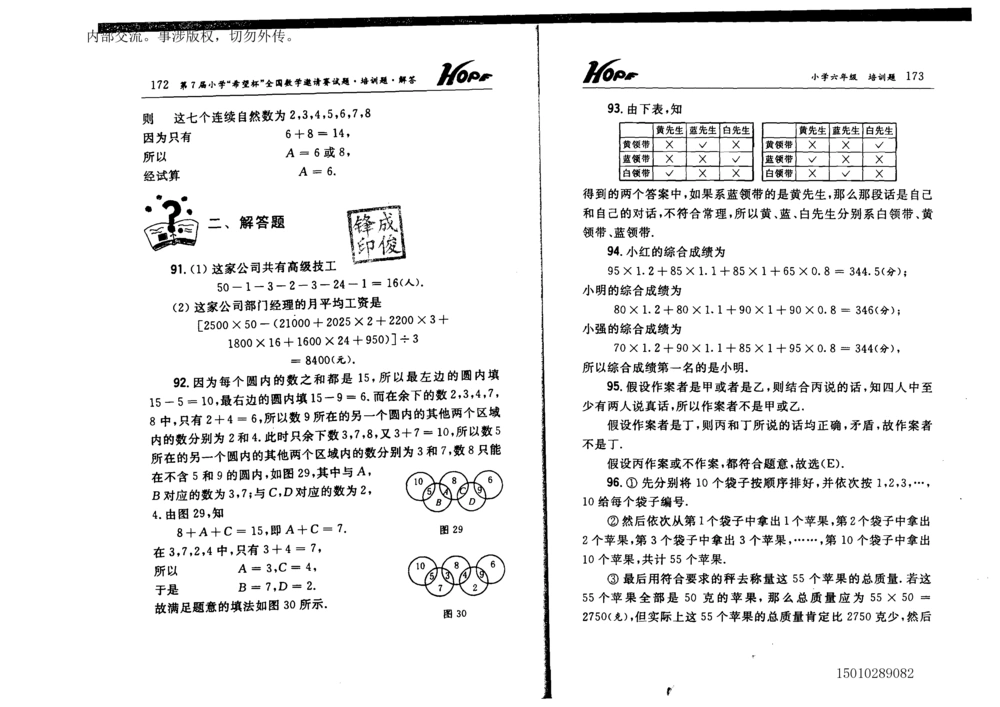 内部交流。事涉版权，切勿外传。
172 第7届小学“希望杯”全国数学邀请赛试题·培训题·解答 HOPE
则 这七个连续自然数为2,3,4,5,6,7,8
因为只有 6＋8＝14,
所以 A＝6或8,
经试算 A＝6.
二、解答题
锋成
印俊
91.(1) 这家公司共有高级技工
50－1－3－2－3－24－1＝16(人).
(2) 这家公司部门经理的月平均工资是
[2500×50－(21000＋2025×2＋2200×3＋
1800×16＋1600×24＋950)]÷3
＝8400(元).
92. 因为每个圆内的数之和都是15,所以最左边的圆内填
15－5＝10,最右边的圆内填15－9＝6.而在余下的数2,3,4,7,
8中,只有2＋4＝6,所以数9所在的另一个圆内的其他两个区域
内的数分别为2和4.此时只余下数3,7,8,又3＋7＝10,所以数5
所在的另一个圆内的其他两个区域内的数分别为3和7,数8只能
在不含5和9的圆内,如图29,其中与A,
B对应的数为3,7;与C,D对应的数为2,
4.由图29,知
8＋A＋C＝15,即A＋C＝7.
在3,7,2,4中,只有3＋4＝7,
所以 A＝3,C＝4,
于是 B＝7,D＝2.
故满足题意的填法如图30所示.
10 8 6
5 A C 9
B D
图29
10 8 6
5 3 4 9
7 2
图30
HOPE 小学六年级 培训题 173
93. 由下表,知
黄先生 蓝先生 白先生
黄领带 × ✓ ×
蓝领带 × × ✓
白领带 ✓ × ×
黄先生 蓝先生 白先生
黄领带 × × ✓
蓝领带 ✓ × ×
白领带 × ✓ ×
得到的两个答案中,如果系蓝领带的是黄先生,那么那段话是自己
和自己的对话,不符合常理,所以黄、蓝、白先生分别系白领带、黄
领带、蓝领带.
94. 小红的综合成绩为
95×1.2＋85×1.1＋85×1＋65×0.8＝344.5(分);
小明的综合成绩为
80×1.2＋80×1.1＋90×1＋90×0.8＝346(分);
小强的综合成绩为
70×1.2＋90×1.1＋85×1＋95×0.8＝344(分),
所以综合成绩第一名的是小明.
95. 假设作案者是甲或者是乙,则结合丙说的话,知四人中至
少有两人说真话,所以作案者不是甲或乙.
假设作案者是丁,则丙和丁所说的话均正确,矛盾,故作案者
不是丁.
假设丙作案或不作案,都符合题意,故选(E).
96. ① 先分别将10个袋子按顺序排好,并依次按1,2,3,…,
10给每个袋子编号.
② 然后依次从第1个袋子中拿出1个苹果,第2个袋子中拿出
2个苹果,第3个袋子中拿出3个苹果,……,第10个袋子中拿出
10个苹果,共计55个苹果.
③ 最后用符合要求的秤去称量这55个苹果的总质量.若这
55个苹果全部是50克的苹果,那么总质量应为55×50＝
2750(克),但实际上这55个苹果的总质量肯定比2750克少,然后
15010289082